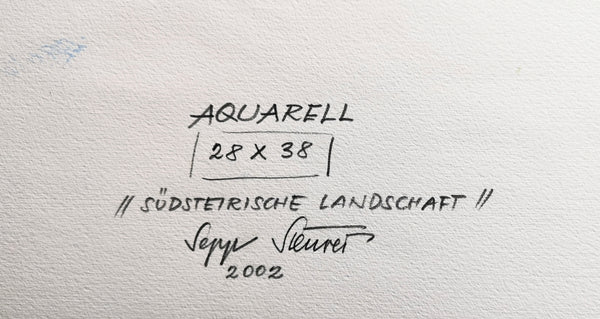 AQUARELL
28 X 38
" SÜDSTEIRISCHE LANDSCHAFT "
Sepp
2002